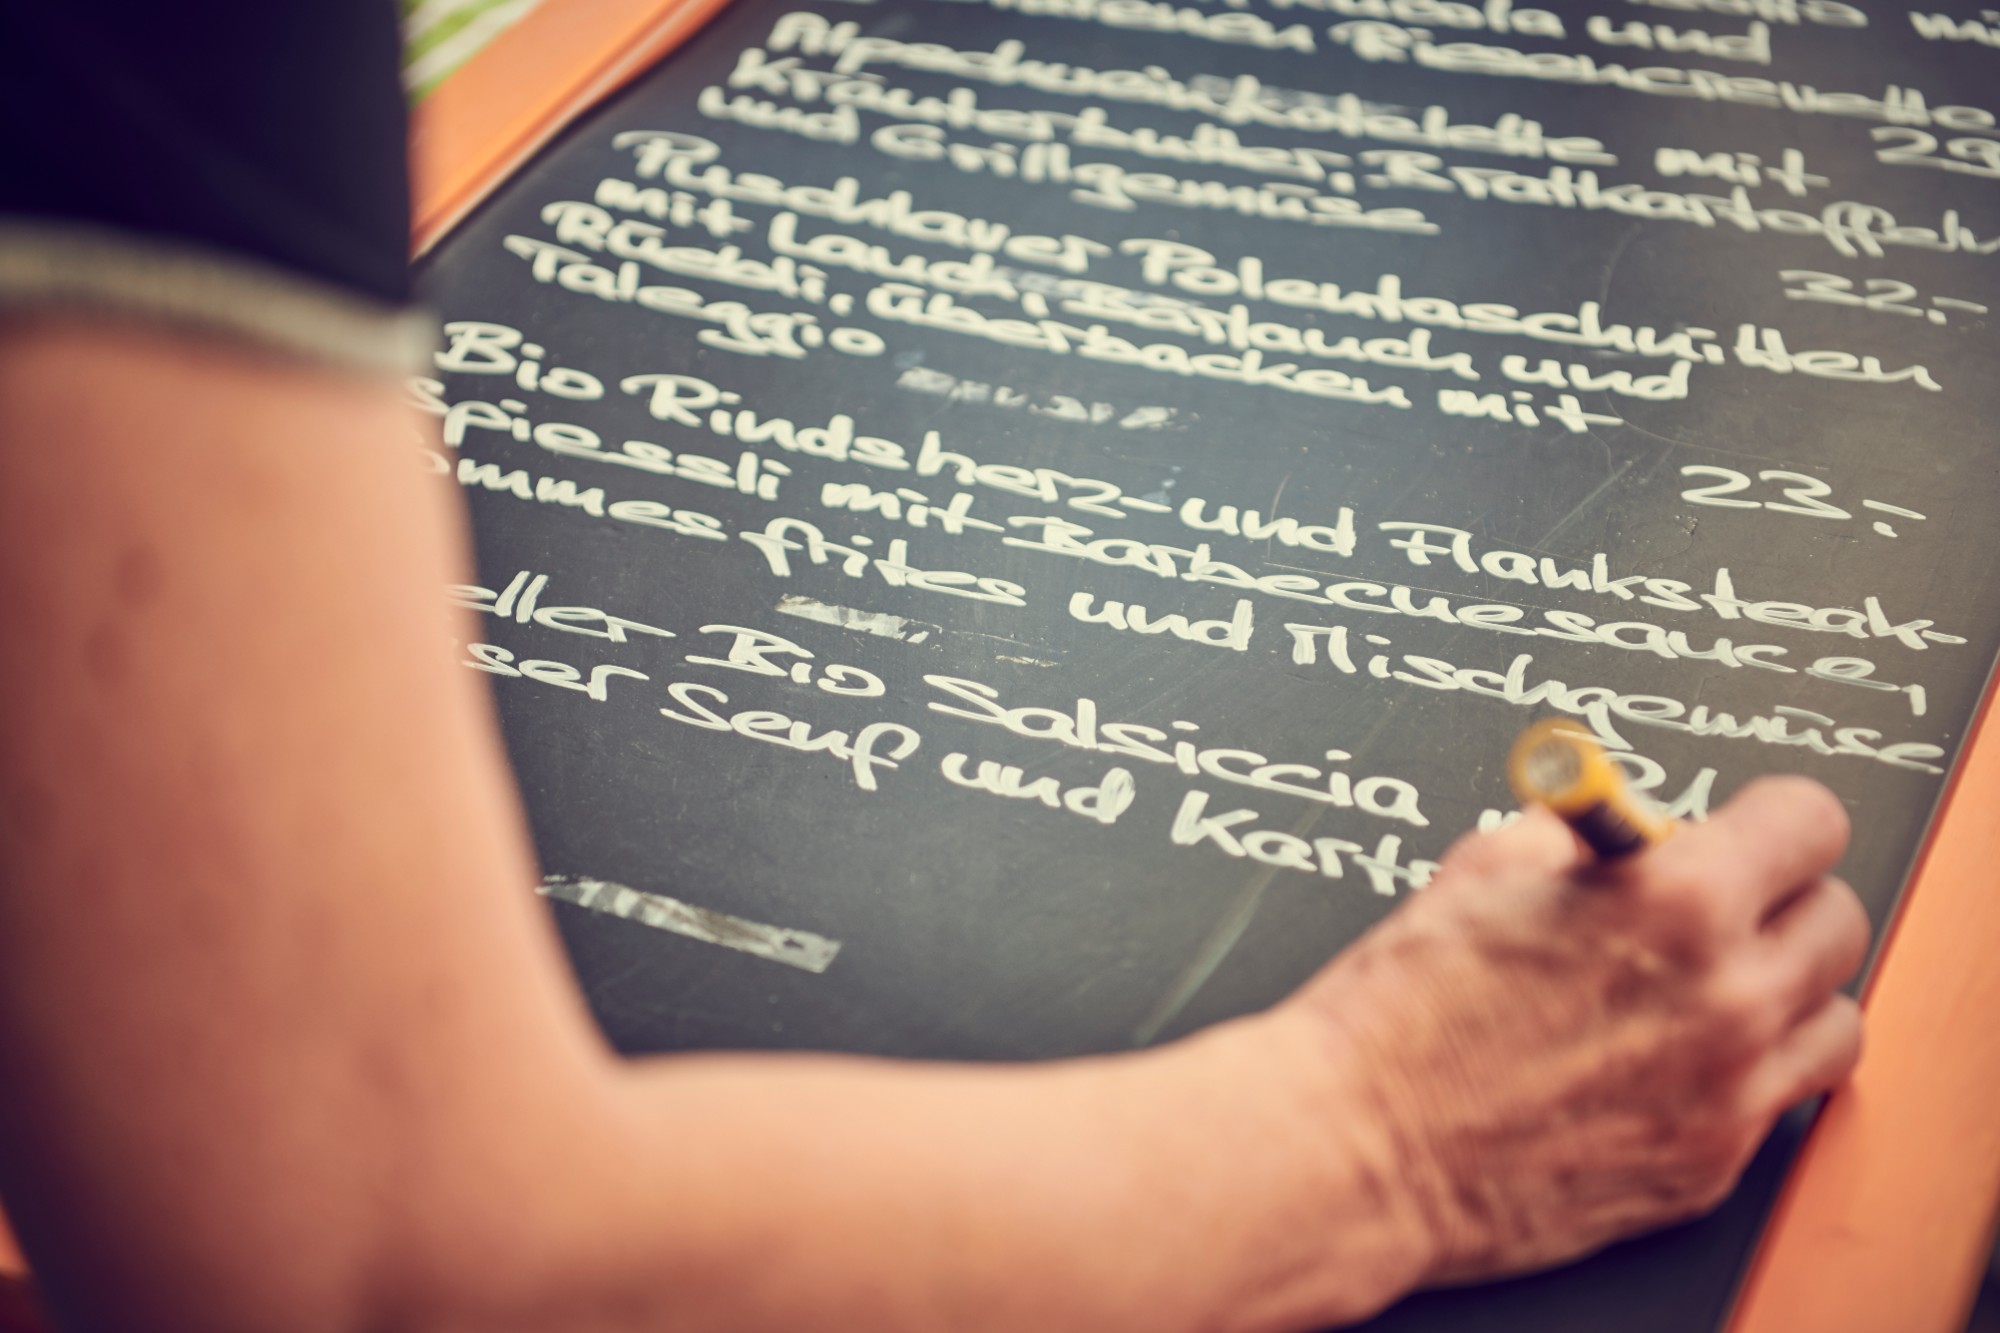 Rucola und
Riesencrevette
29
Alpschweinkotelette mit
Kräuterbutter, Bratkartoffeln
und Grillgemüse
32.-
Puschlaver Polentaschnitten
mit Lauch, Bärlauch und
Rüebli, überbacken mit
Taleggio
23.-
Bio Rindsherz- und Flanksteak-
spiessli mit Barbecuesauce,
ommes frites und Mischgemüse
eller Bio Salsiccia
sser Senf und Karto